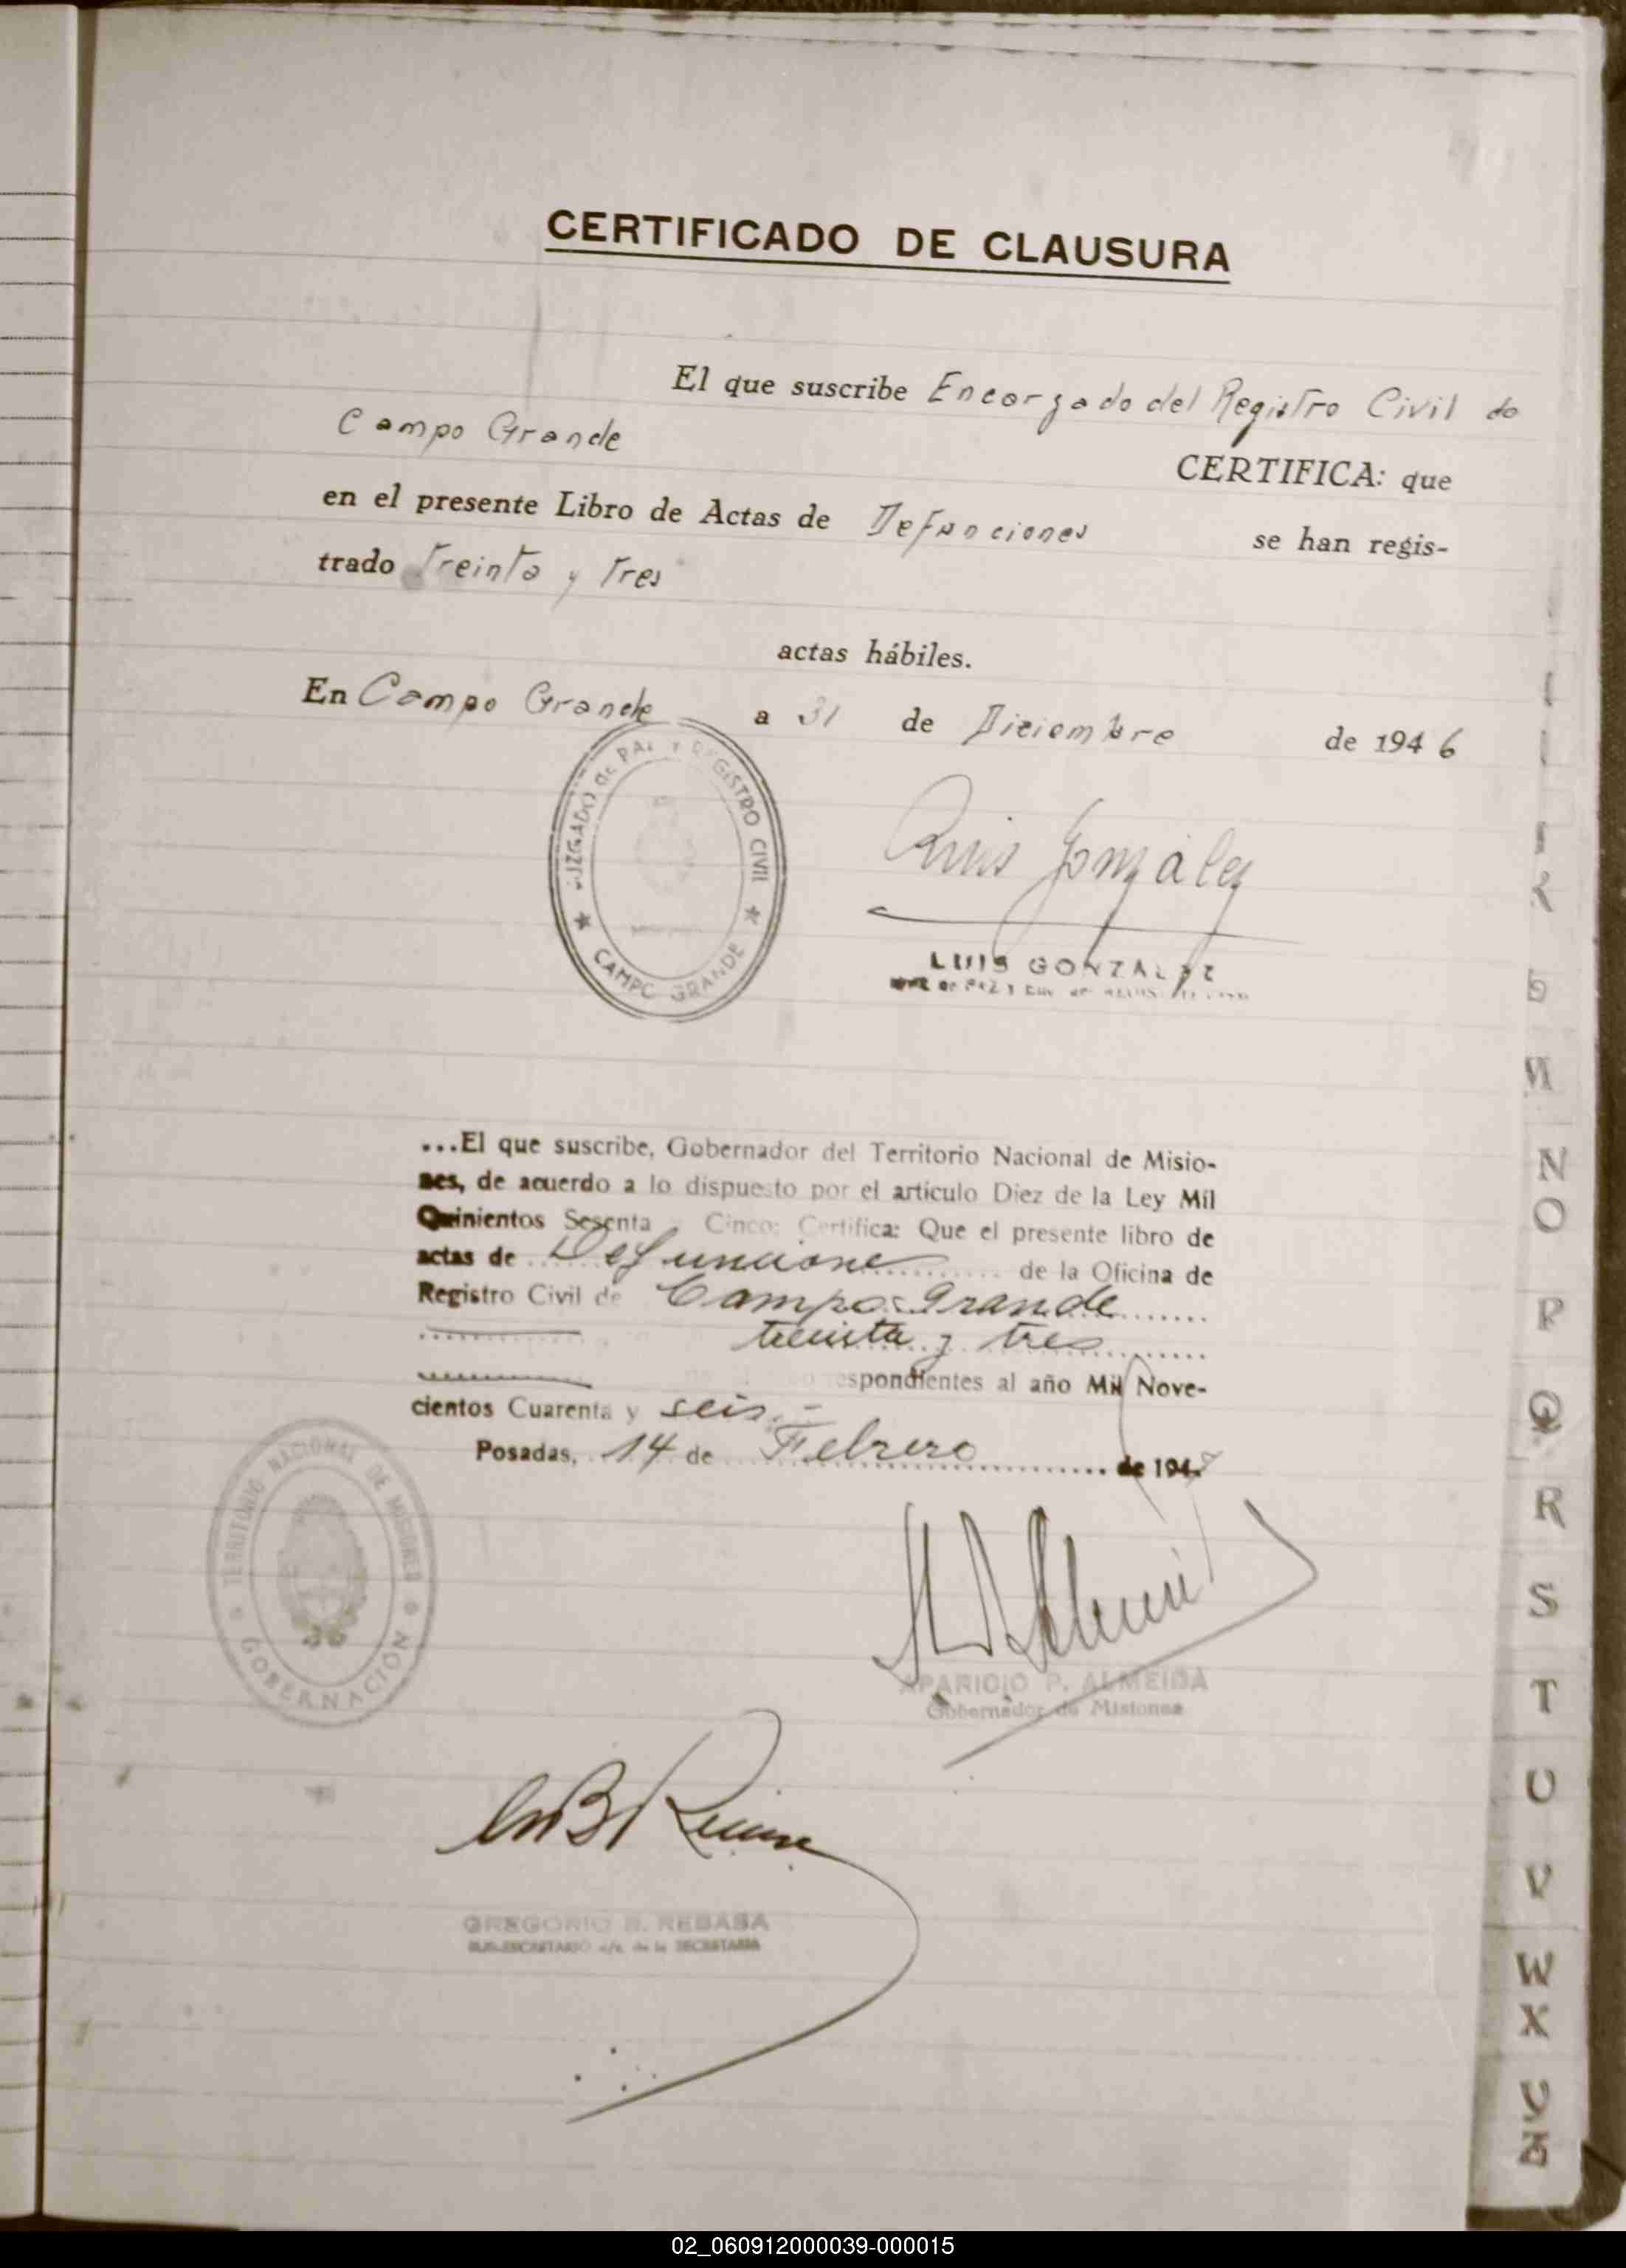 CERTIFICADO DE CLAUSURA
El que suscribe Encargado del Registro Civil de
Campo Grande
CERTIFICA: que
en el presente Libro de Actas de Defunciones se han regis-
trado Treinta y Tres
actas hábiles.
En Campo Grande a 31 de Diciembre de 1946
JUZGADO de PAZ Y REGISTRO CIVIL
★ CAMPO GRANDE ★
Luis González
LUIS GONZALEZ
DE PAZ Y
...El que suscribe, Gobernador del Territorio Nacional de Misio-
nes, de acuerdo a lo dispuesto por el artículo Diez de la Ley Mil
Quinientos Sesenta y Cinco: Certifica: Que el presente libro de
actas de Defuncione de la Oficina de
Registro Civil de Campo Grande
treinta y tres
respondientes al año Mil Nove-
cientos Cuarenta y seis.-
Posadas, 14 de Febrero de 194
TERRITORIO NACIONAL DE MISIONES
GOBERNACIÓN
APARICIO P. ALMEIDA
Gobernador de Misiones
GREGORIO B. REBASA
SUB-SECRETARIO a/c. de la SECRETARIA
N
O
P
Q
R
S
T
U
V
W
X
02_060912000039-000015